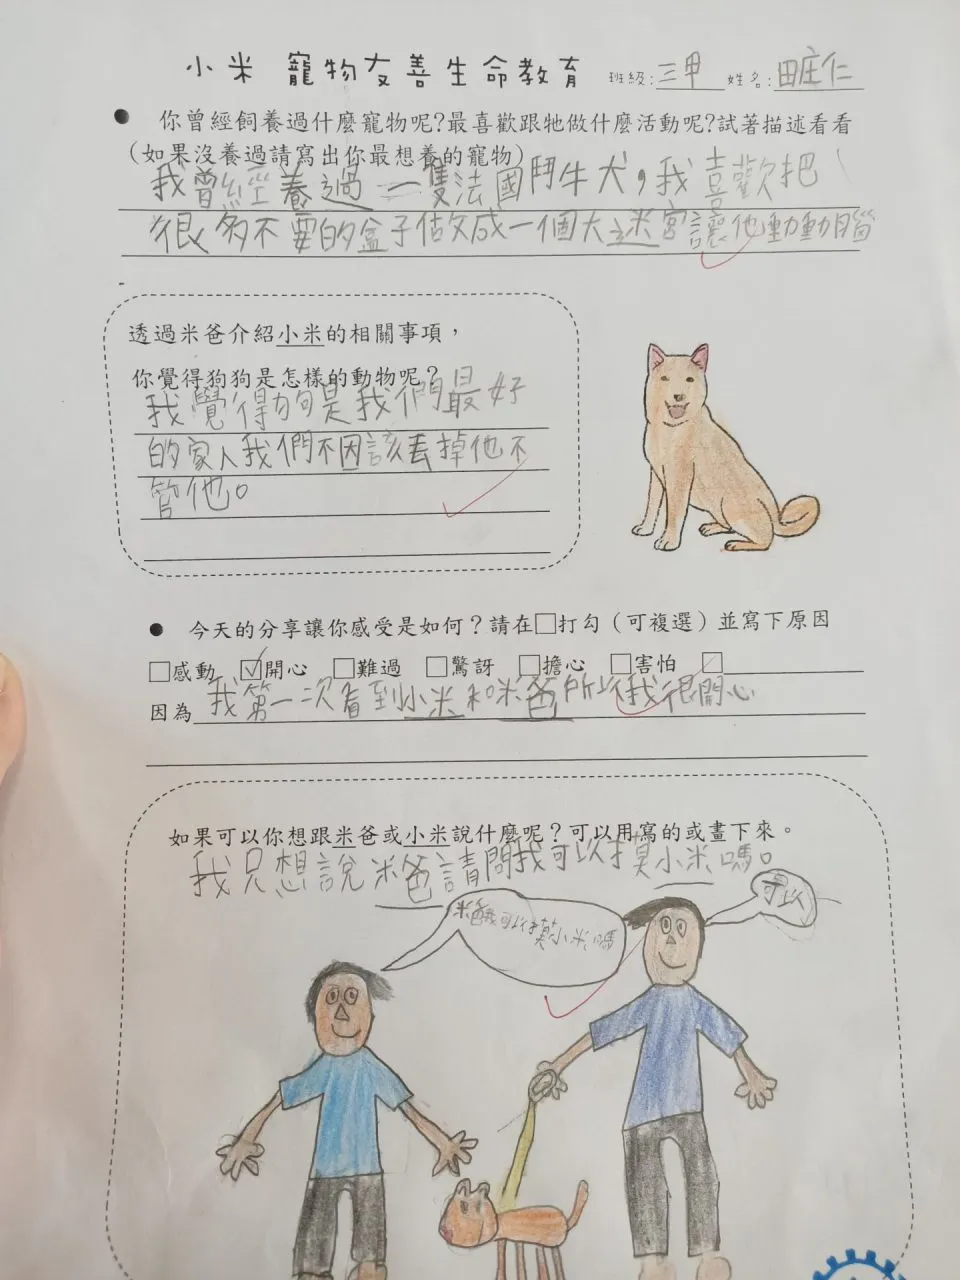 小米 寵物友善生命教育 班級:三甲 姓名:田庄仁
● 你曾經飼養過什麼寵物呢?最喜歡跟牠做什麼活動呢?試著描述看看
(如果沒養過請寫出你最想養的寵物)
我曾經養過一隻法國鬥牛犬,我喜歡把
很多不要的盒子做成一個大迷宮讓他動動腦
透過米爸介紹小米的相關事項,
你覺得狗狗是怎樣的動物呢?
我覺得狗是我們最好
的家人我們不因該丟掉他不
管他。
● 今天的分享讓你感受是如何?請在□打勾(可複選)並寫下原因
□感動 ☑開心 □難過 □驚訝 □擔心 □害怕 □
因為我第一次看到小米和米爸所以我很開心
如果可以你想跟米爸或小米說什麼呢?可以用寫的或畫下來。
我只想說米爸請問我可以摸小米嗎。
米爸我可以摸小米嗎
可以